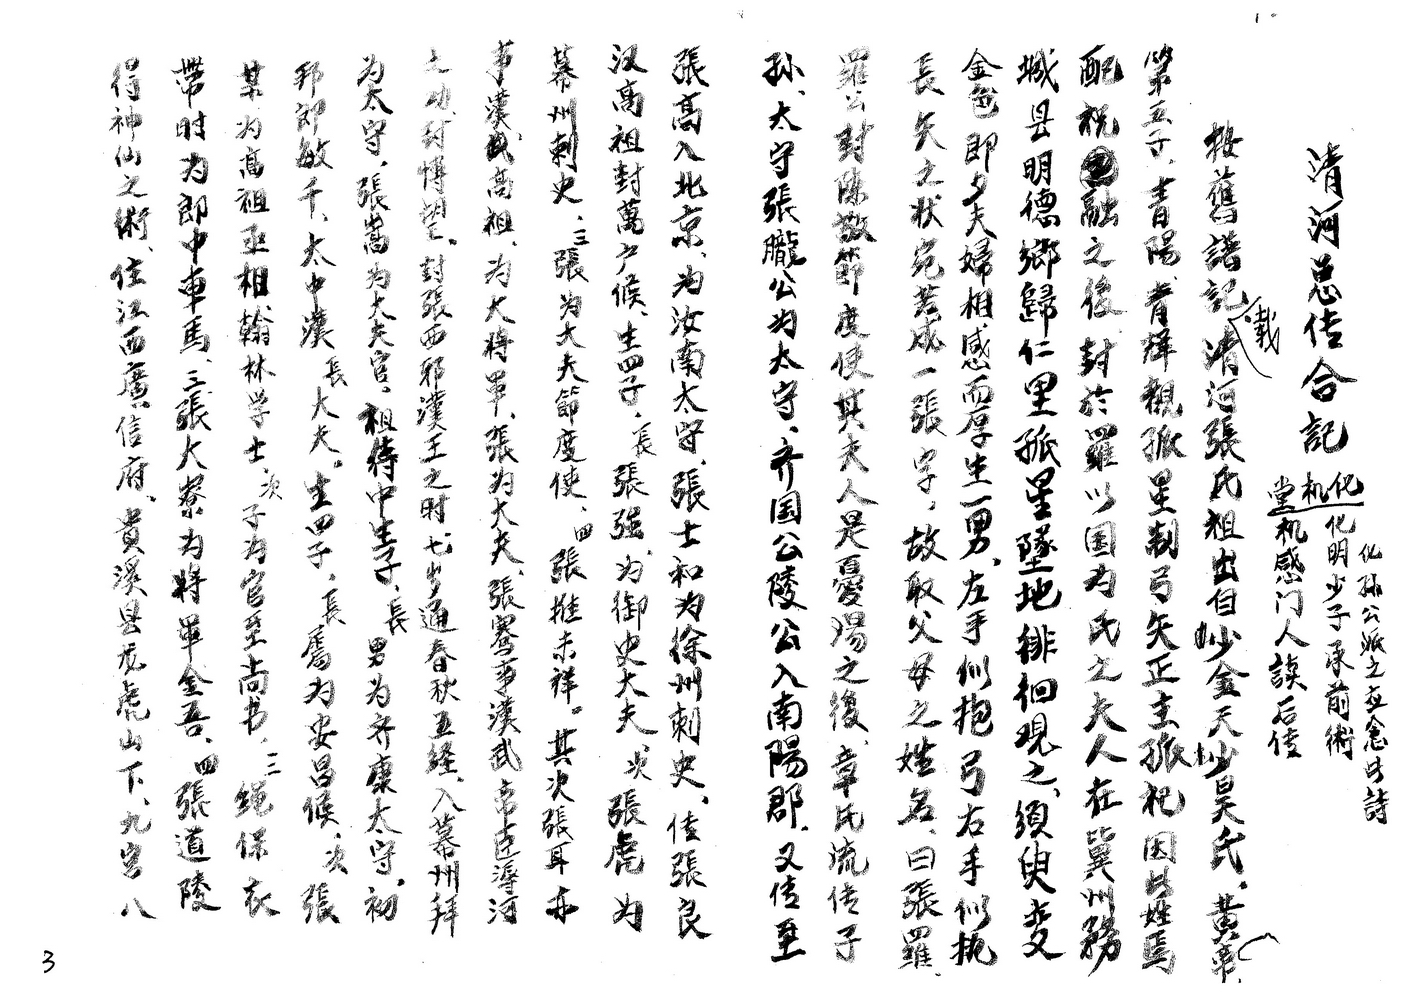 化孫公派之在念此詩
化化明少子承前術
机
堂机感门人謨后传
清河总传合記
按舊譜記清河張氏祖出自少金天少昊氏。黄帝
儀
第五子、青陽、青輝觀孤星制弓矢正主孤祀因此姓焉
配祝融之後、封於羅以国为氏之夫人在冀州務
城县明德鄉歸仁里孤星墜地徘徊观之、须臾变
金色即夕夫婦相感而孕生一男、左手似抱弓右手似执
長矢之状宛若成一張字，故取父母之姓名、曰張羅、
羅公封陈敬節度使其夫人是憂陽之後、章氏流传子
孙、太守張龐公为太守、齐国公陵公入南陽郡、又传至
張高入北京、为汝南太守、張士和为徐州刺史、传張良
汉高祖封萬户候、生四子、長張强、为御史大夫、次張虎为
幕州刺史、三張为大夫節度使、四張推未祥。其次張耳亦
事漢武高祖、为大將軍、張为大夫、張騫事漢武帝追尋河
之功、封博望、封張西邪漢王之时七岁通春秋五经、入幕州拜
为太守、張嵩为大夫官、祖待中生子、長男为齐康太守、初
邦郎敏千、太中漢長大夫。生四子、長禹为安昌候、次張
某为高祖丞相、翰林学士、次子为官至尚书、三绳保衣
帶时为郎中車馬、三張大寮为將軍金吾、四張道陵
得神仙之術、住江西廣信府、貴溪县龙虎山下、九宫八
3